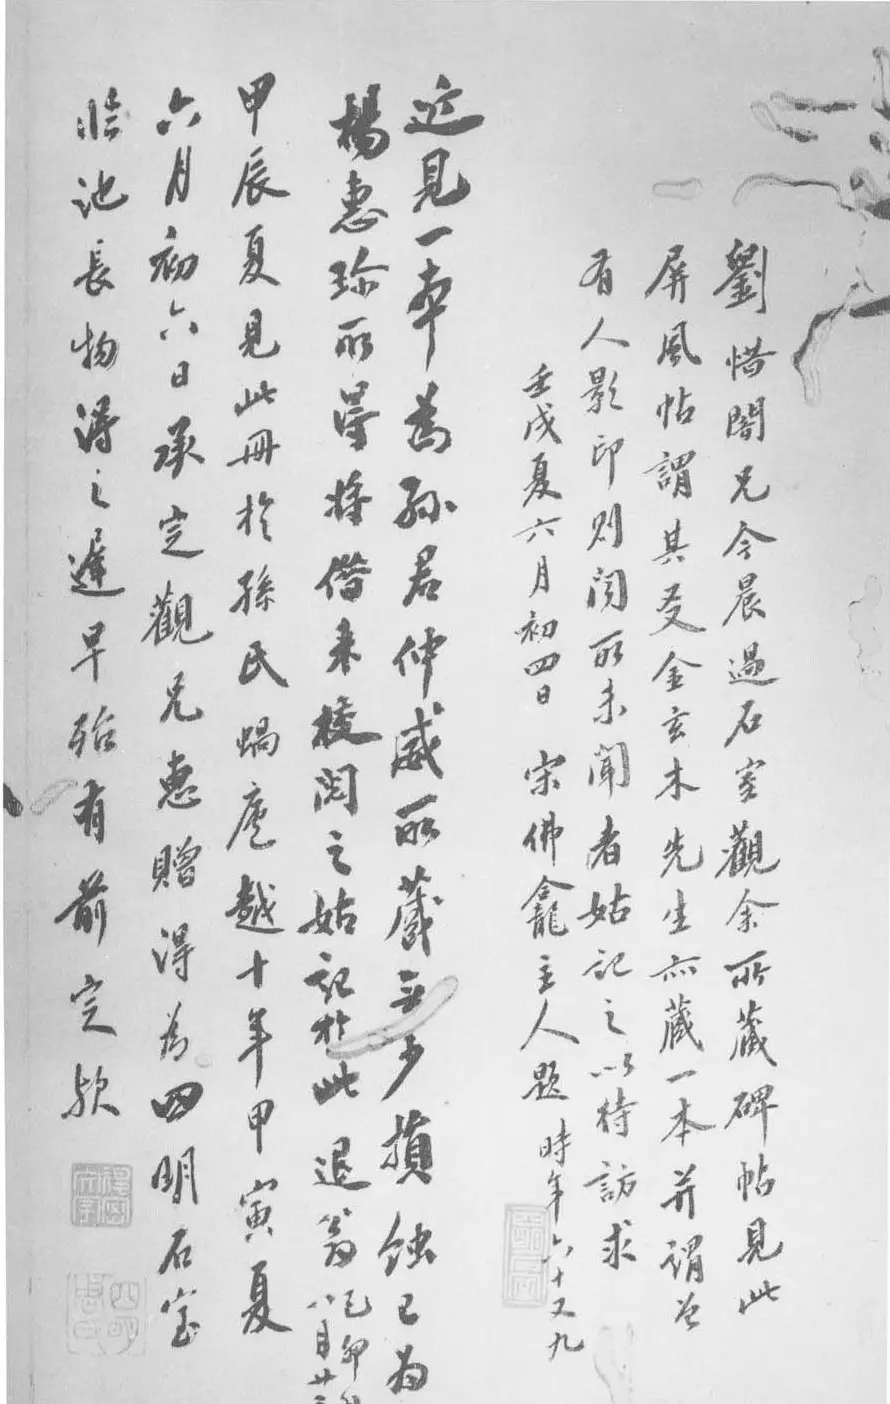 劉惜闇兄今晨過石室觀余所藏碑帖見此
屏風帖謂其友金玄木先生亦藏一本并謂曾
有人影印則聞所未聞者姑記之以待訪求
壬戌夏六月初四日 宋佛龕主人題 時年六十又九
近見一本為孫君仲威所藏無少損蝕已為
楊惠珍所得將借來校閱之姑記於此 退翁 乙卯 八月廿
甲辰夏見此冊於孫氏蝸廬越十年甲寅夏
六月初六日承定觀兄惠贈得為四明石室
臨池長物得之遲早殆有前定歟
四明